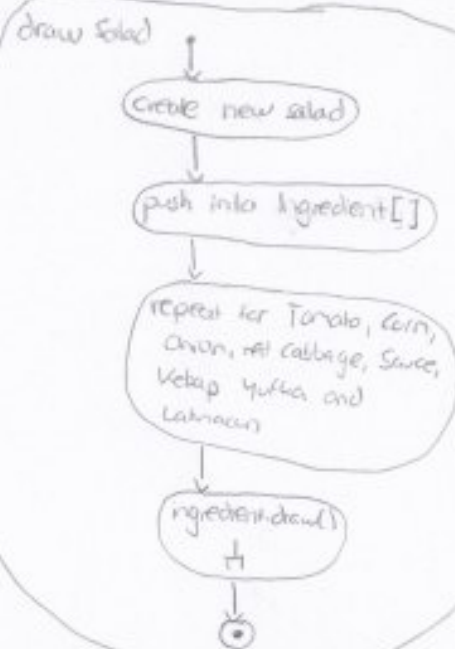 draw Salad
create new salad
push into Ingredient[]
repeat for Tomato, Corn,
Onion, red Cabbage, Sauce,
Kebap Yufka and
Lahmacun
ingredient.draw()